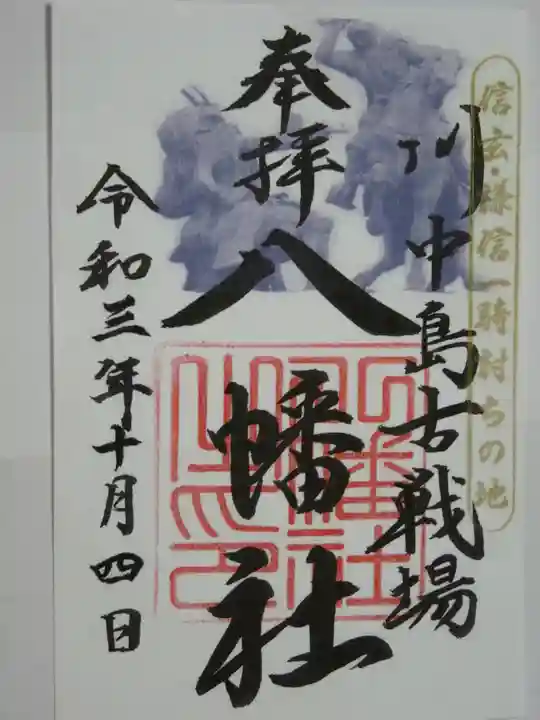 信玄・謙信一騎討ちの地
川中島古戦場
奉拝
八幡社
令和三年十月四日
八幡社
之印